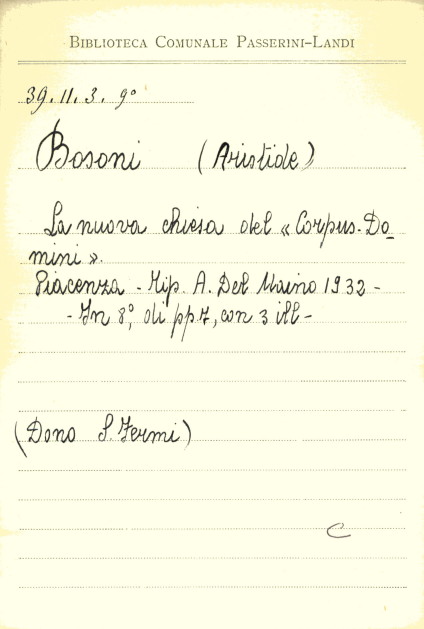 BIBLIOTECA COMUNALE PASSERINI-LANDI
39.11.3. 9°
Bosoni (Aristide)
La nuova chiesa del « Corpus-Do-
mini ».
Piacenza - Tip. A. Del Maino 1932 -
- In 8°, di pp 7, con 3 ill -
(Dono S. Fermi)
C